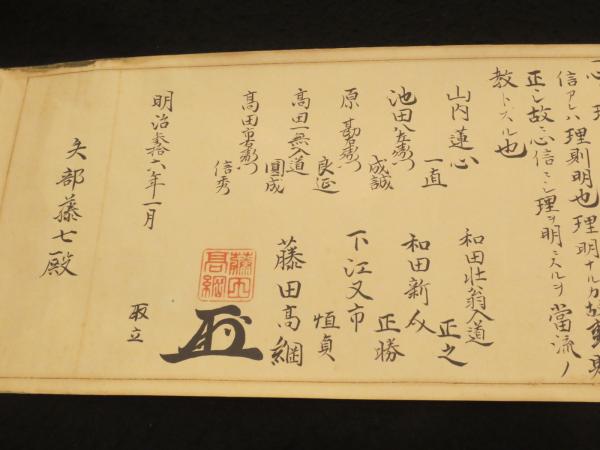 信アレハ理則明也理明ナルカ故
正シ故ニ心信ニシ理ヲ明ニスルヲ當流ノ
教トスル也
山内蓮心
一直
池田八左衛門
成誠
原勘右衛門
良延
高田一無入道
圓成
高田市右衛門
信秀
和田壮翁入道
正之
和田新
正勝
下江又市
恒貞
藤田高綱
藤田
高綱
明治拾六年一月
取立
矢部藤七殿